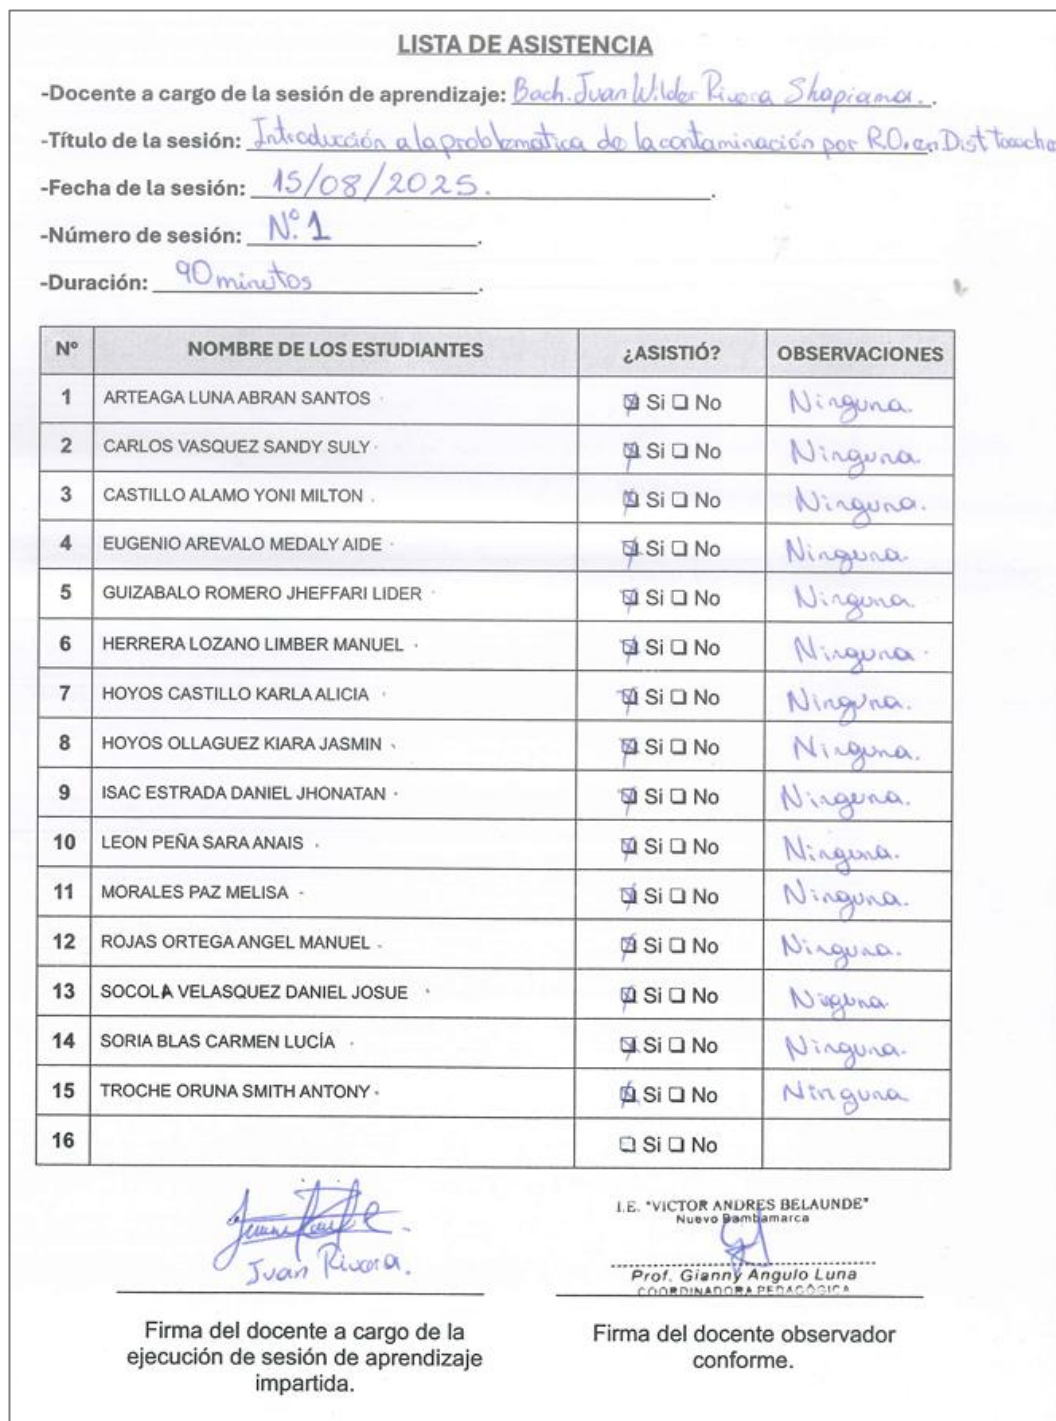 LISTA DE ASISTENCIA
-Docente a cargo de la sesión de aprendizaje: Bach. Juan Wilder Rivera Shapiama.
-Título de la sesión: Introducción a la problematica de la contaminación por R.O. en Dist Tocache
-Fecha de la sesión: 15/08/2025.
-Número de sesión: N.° 1
-Duración: 90 minutos
N° NOMBRE DE LOS ESTUDIANTES ¿ASISTIÓ? OBSERVACIONES
1 ARTEAGA LUNA ABRAN SANTOS ☒ Si ☐ No Ninguna.
2 CARLOS VASQUEZ SANDY SULY ☒ Si ☐ No Ninguna
3 CASTILLO ALAMO YONI MILTON ☒ Si ☐ No Ninguna.
4 EUGENIO AREVALO MEDALY AIDE ☒ Si ☐ No Ninguna.
5 GUIZABALO ROMERO JHEFFARI LIDER ☒ Si ☐ No Ninguna
6 HERRERA LOZANO LIMBER MANUEL ☒ Si ☐ No Ninguna.
7 HOYOS CASTILLO KARLA ALICIA ☒ Si ☐ No Ninguna.
8 HOYOS OLLAGUEZ KIARA JASMIN ☒ Si ☐ No Ninguna.
9 ISAC ESTRADA DANIEL JHONATAN ☒ Si ☐ No Ninguna.
10 LEON PEÑA SARA ANAIS ☒ Si ☐ No Ninguna.
11 MORALES PAZ MELISA ☒ Si ☐ No Ninguna.
12 ROJAS ORTEGA ANGEL MANUEL ☒ Si ☐ No Ninguna.
13 SOCOLA VELASQUEZ DANIEL JOSUE ☒ Si ☐ No Ninguna.
14 SORIA BLAS CARMEN LUCÍA ☒ Si ☐ No Ninguna.
15 TROCHE ORUNA SMITH ANTONY ☒ Si ☐ No Ninguna
16 ☐ Si ☐ No
Juan Rivera.
Firma del docente a cargo de la
ejecución de sesión de aprendizaje
impartida.
I.E. "VICTOR ANDRES BELAUNDE"
Nuevo Bambamarca
Prof. Gianny Angulo Luna
COORDINADORA PEDAGÓGICA
Firma del docente observador
conforme.